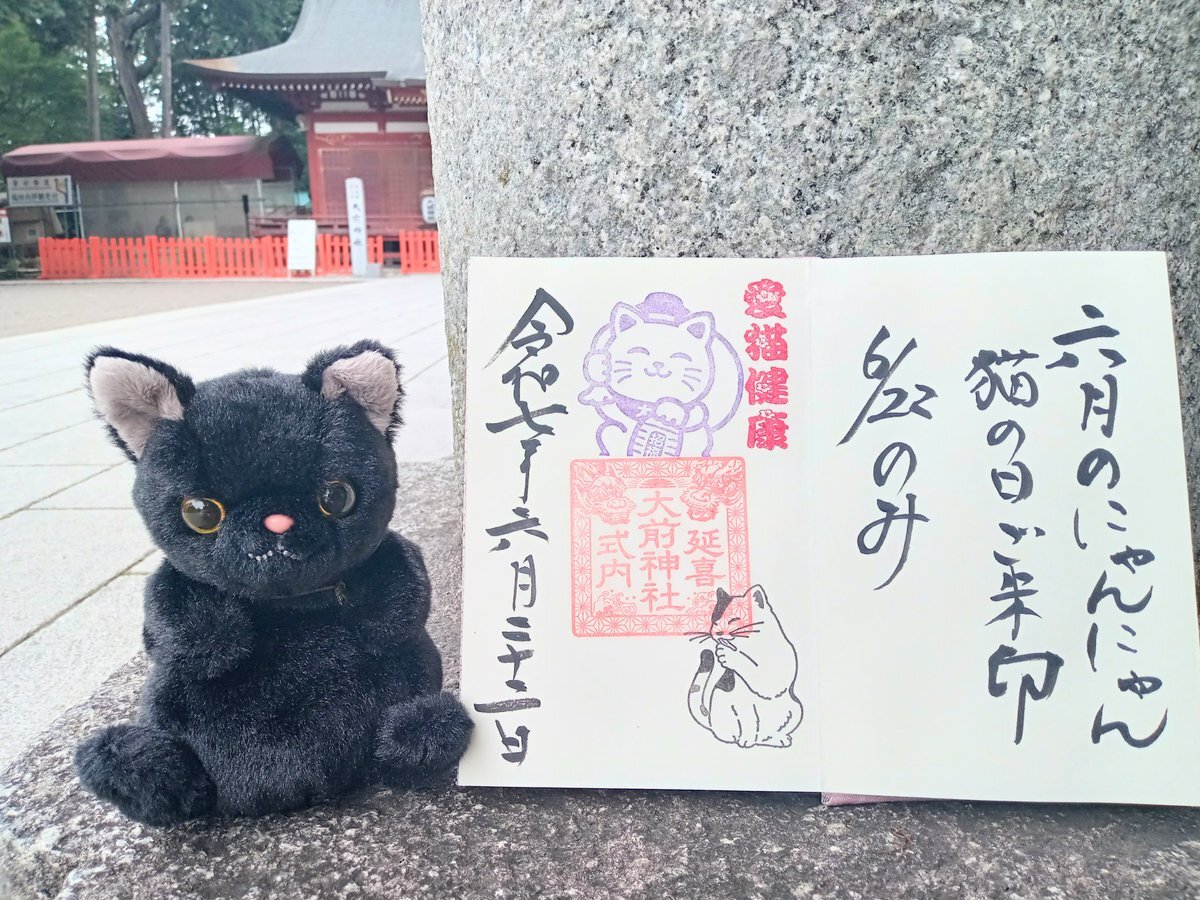 六月のにゃんにゃん
猫の日ご来印
6/22のみ
愛猫健康
延喜
大前神社
式内
令和七年六月二十二日
大前神社